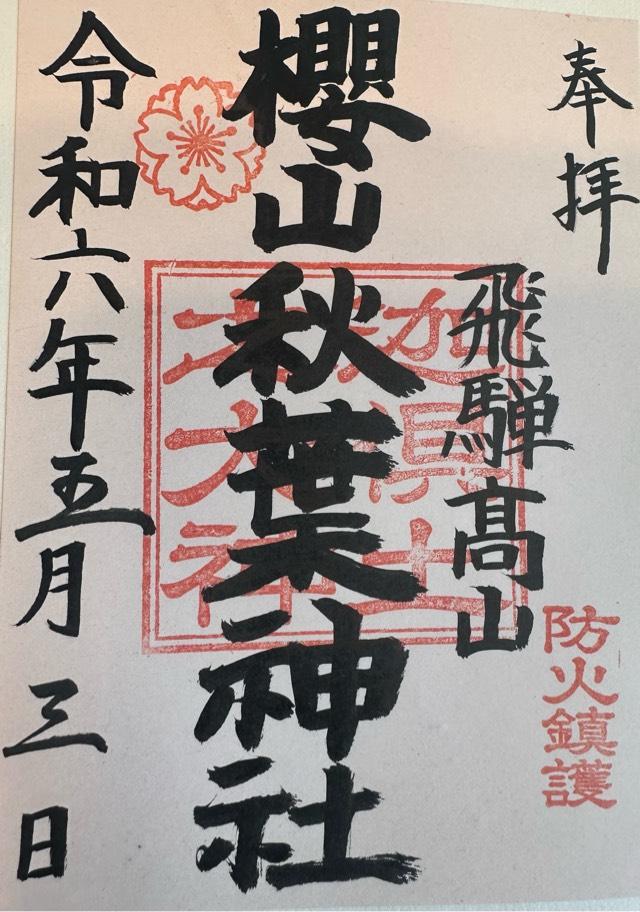 奉拝
飛騨髙山
防火鎮護
櫻山秋葉神社
令和六年五月三日